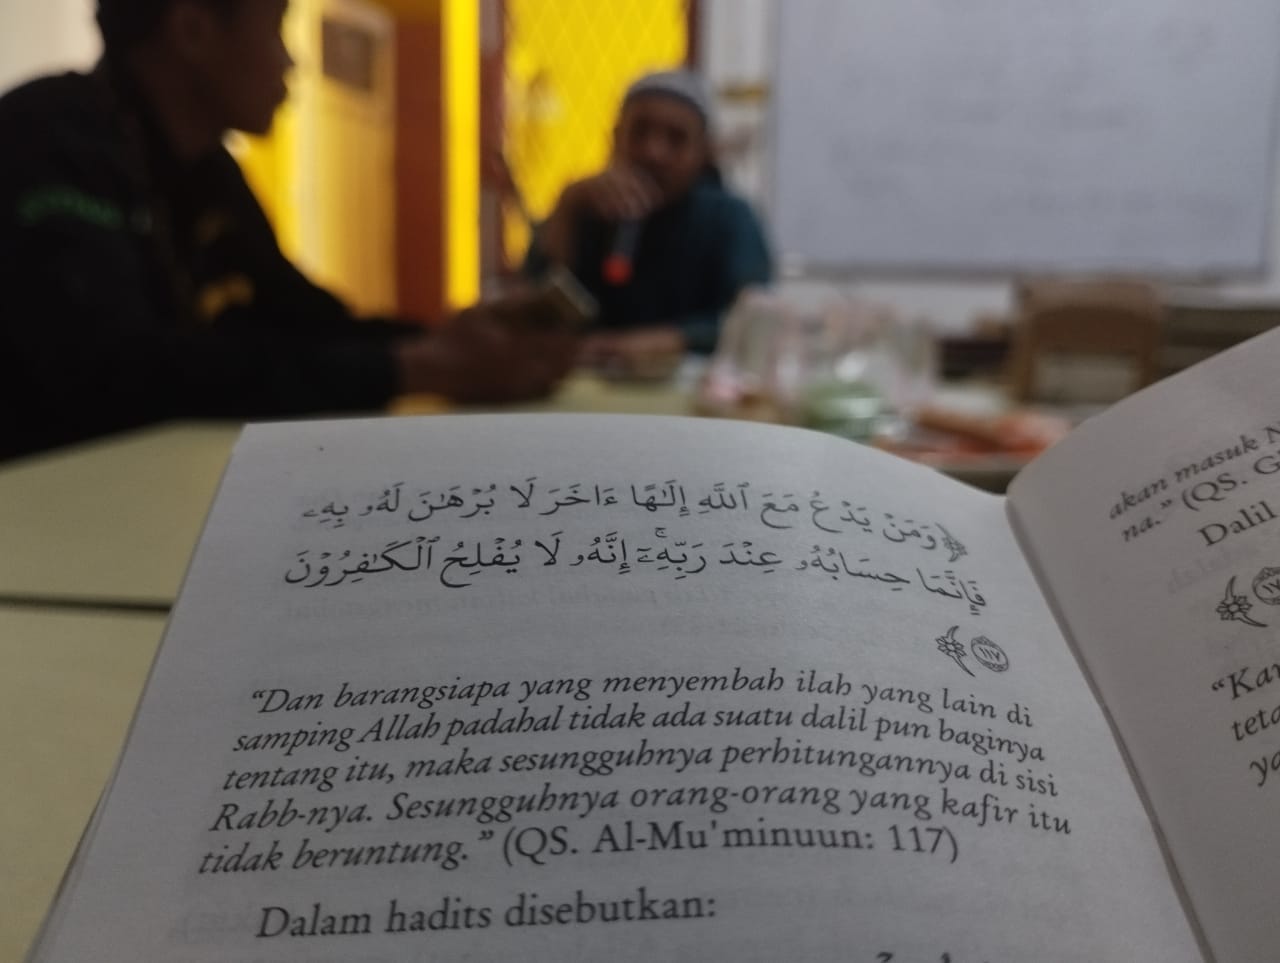 ﴿وَمَنْ يَدْعُ مَعَ ٱللَّهِ إِلَـٰهًا ءَاخَرَ لَا بُرْهَـٰنَ لَهُۥ بِهِۦ
فَإِنَّمَا حِسَابُهُۥ عِنْدَ رَبِّهِۦٓ ۚ إِنَّهُۥ لَا يُفْلِحُ ٱلْكَـٰفِرُوْنَ
١١٧﴾
“Dan barangsiapa yang menyembah ilah yang lain di
samping Allah padahal tidak ada suatu dalil pun baginya
tentang itu, maka sesungguhnya perhitungannya di sisi
Rabb-nya. Sesungguhnya orang-orang yang kafir itu
tidak beruntung.” (QS. Al-Mu'minuun: 117)
Dalam hadits disebutkan:
akan masuk
na.” (QS.
Dalil
“Ka